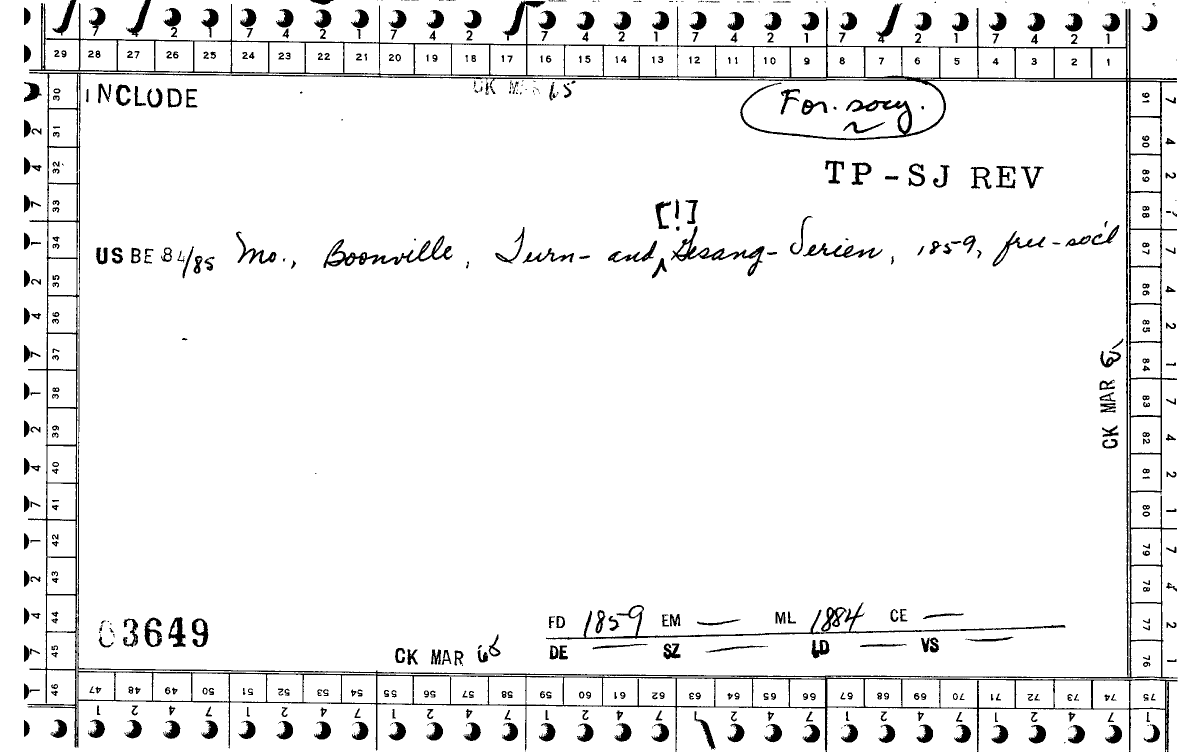 7 4 2 1 7 4 2 1 7 4 2 1 7 4 2 1 7 4 2 1 7 4 2 1
29 28 27 26 25 24 23 22 21 20 19 18 17 16 15 14 13 12 11 10 9 8 7 6 5 4 3 2 1
INCLUDE
CK MAR 65
For. socy.
TP-SJ REV
[!]
US BE 84/85 Mo., Boonville, Turn- and Gesang-Verien, 1859, free-soc'l
CK MAR
FD 1859 EM — ML 1884 CE —
03649
CK MAR 65
DE — SZ — LD — VS —
30 31 32 33 34 35 36 37 38 39 40 41 42 43 44 45 46
91 90 89 88 87 86 85 84 83 82 81 80 79 78 77 76 75
47 48 49 50 51 52 53 54 55 56 57 58 59 60 61 62 63 64 65 66 67 68 69 70 71 72 73 74 75
1 2 4 7 1 2 4 7 1 2 4 7 1 2 4 7 1 2 4 7 1 2 4 7 1